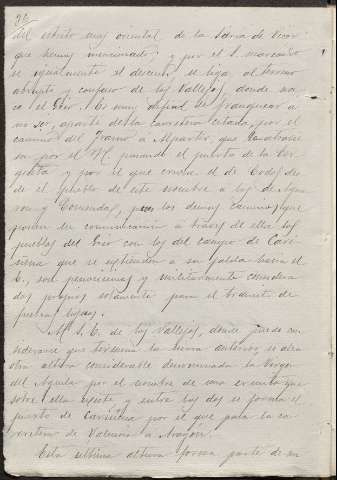 26
del estribo mas oriental de la Sierra de Vicor
que hemos mencionado; y por el S. marcando
se igualmente el descenso, se liga al terreno
abrupto y confuso de los Vallejos, donde na
ce el Grio. Es muy dificil de franquear á
no ser, aparte de la carretera citada, por el
camino del Frasno á Alpartir, que la atravie
sa por el N. pasando el puerto de la
y por el que cruza el de Codos des
de el pueblo de este nombre á los de Agua
ron y Cosuenda, pues los demas caminos que
ponen en comunicacion á traves de ella los
pueblos del Grio con los del campo de Cari
ñena que se estienden a su falda hacia el
E., son penosisimos y militarmente considera
dos propios solamente para el tránsito de
fuerzas ligeras.
Al S. E. de los Vallejos, donde puede con
siderarse que termina la sierra anterior, se alza
otra altura considerable denominada la Virgen
del Aguila por el nombre de una ermita que
sobre ella existe y entre las dos se forma el
puerto de Cariñena por el que pasa la ca
rretera de Valencia á Aragón.
Esta última altura forma parte de un